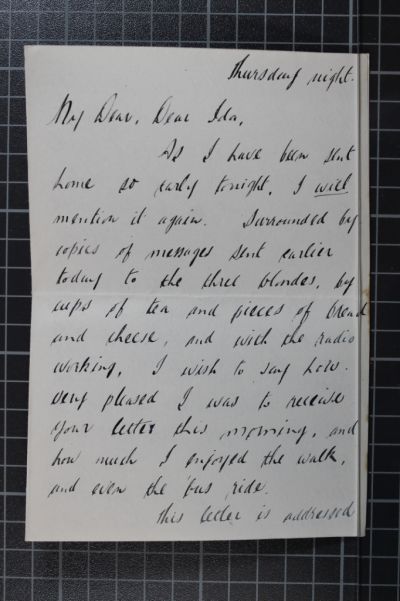 Thursday night.
My Dear, Dear Ida,
As I have been sent
home so early tonight, I will
mention it again. Surrounded by
copies of messages sent earlier
today to the three blondes, by
cups of tea and pieces of bread
and cheese, and with the radio
working, I wish to say how
very pleased I was to receive
your letter this morning, and
how much I enjoyed the walk,
and even the 'bus ride.
This letter is addressed